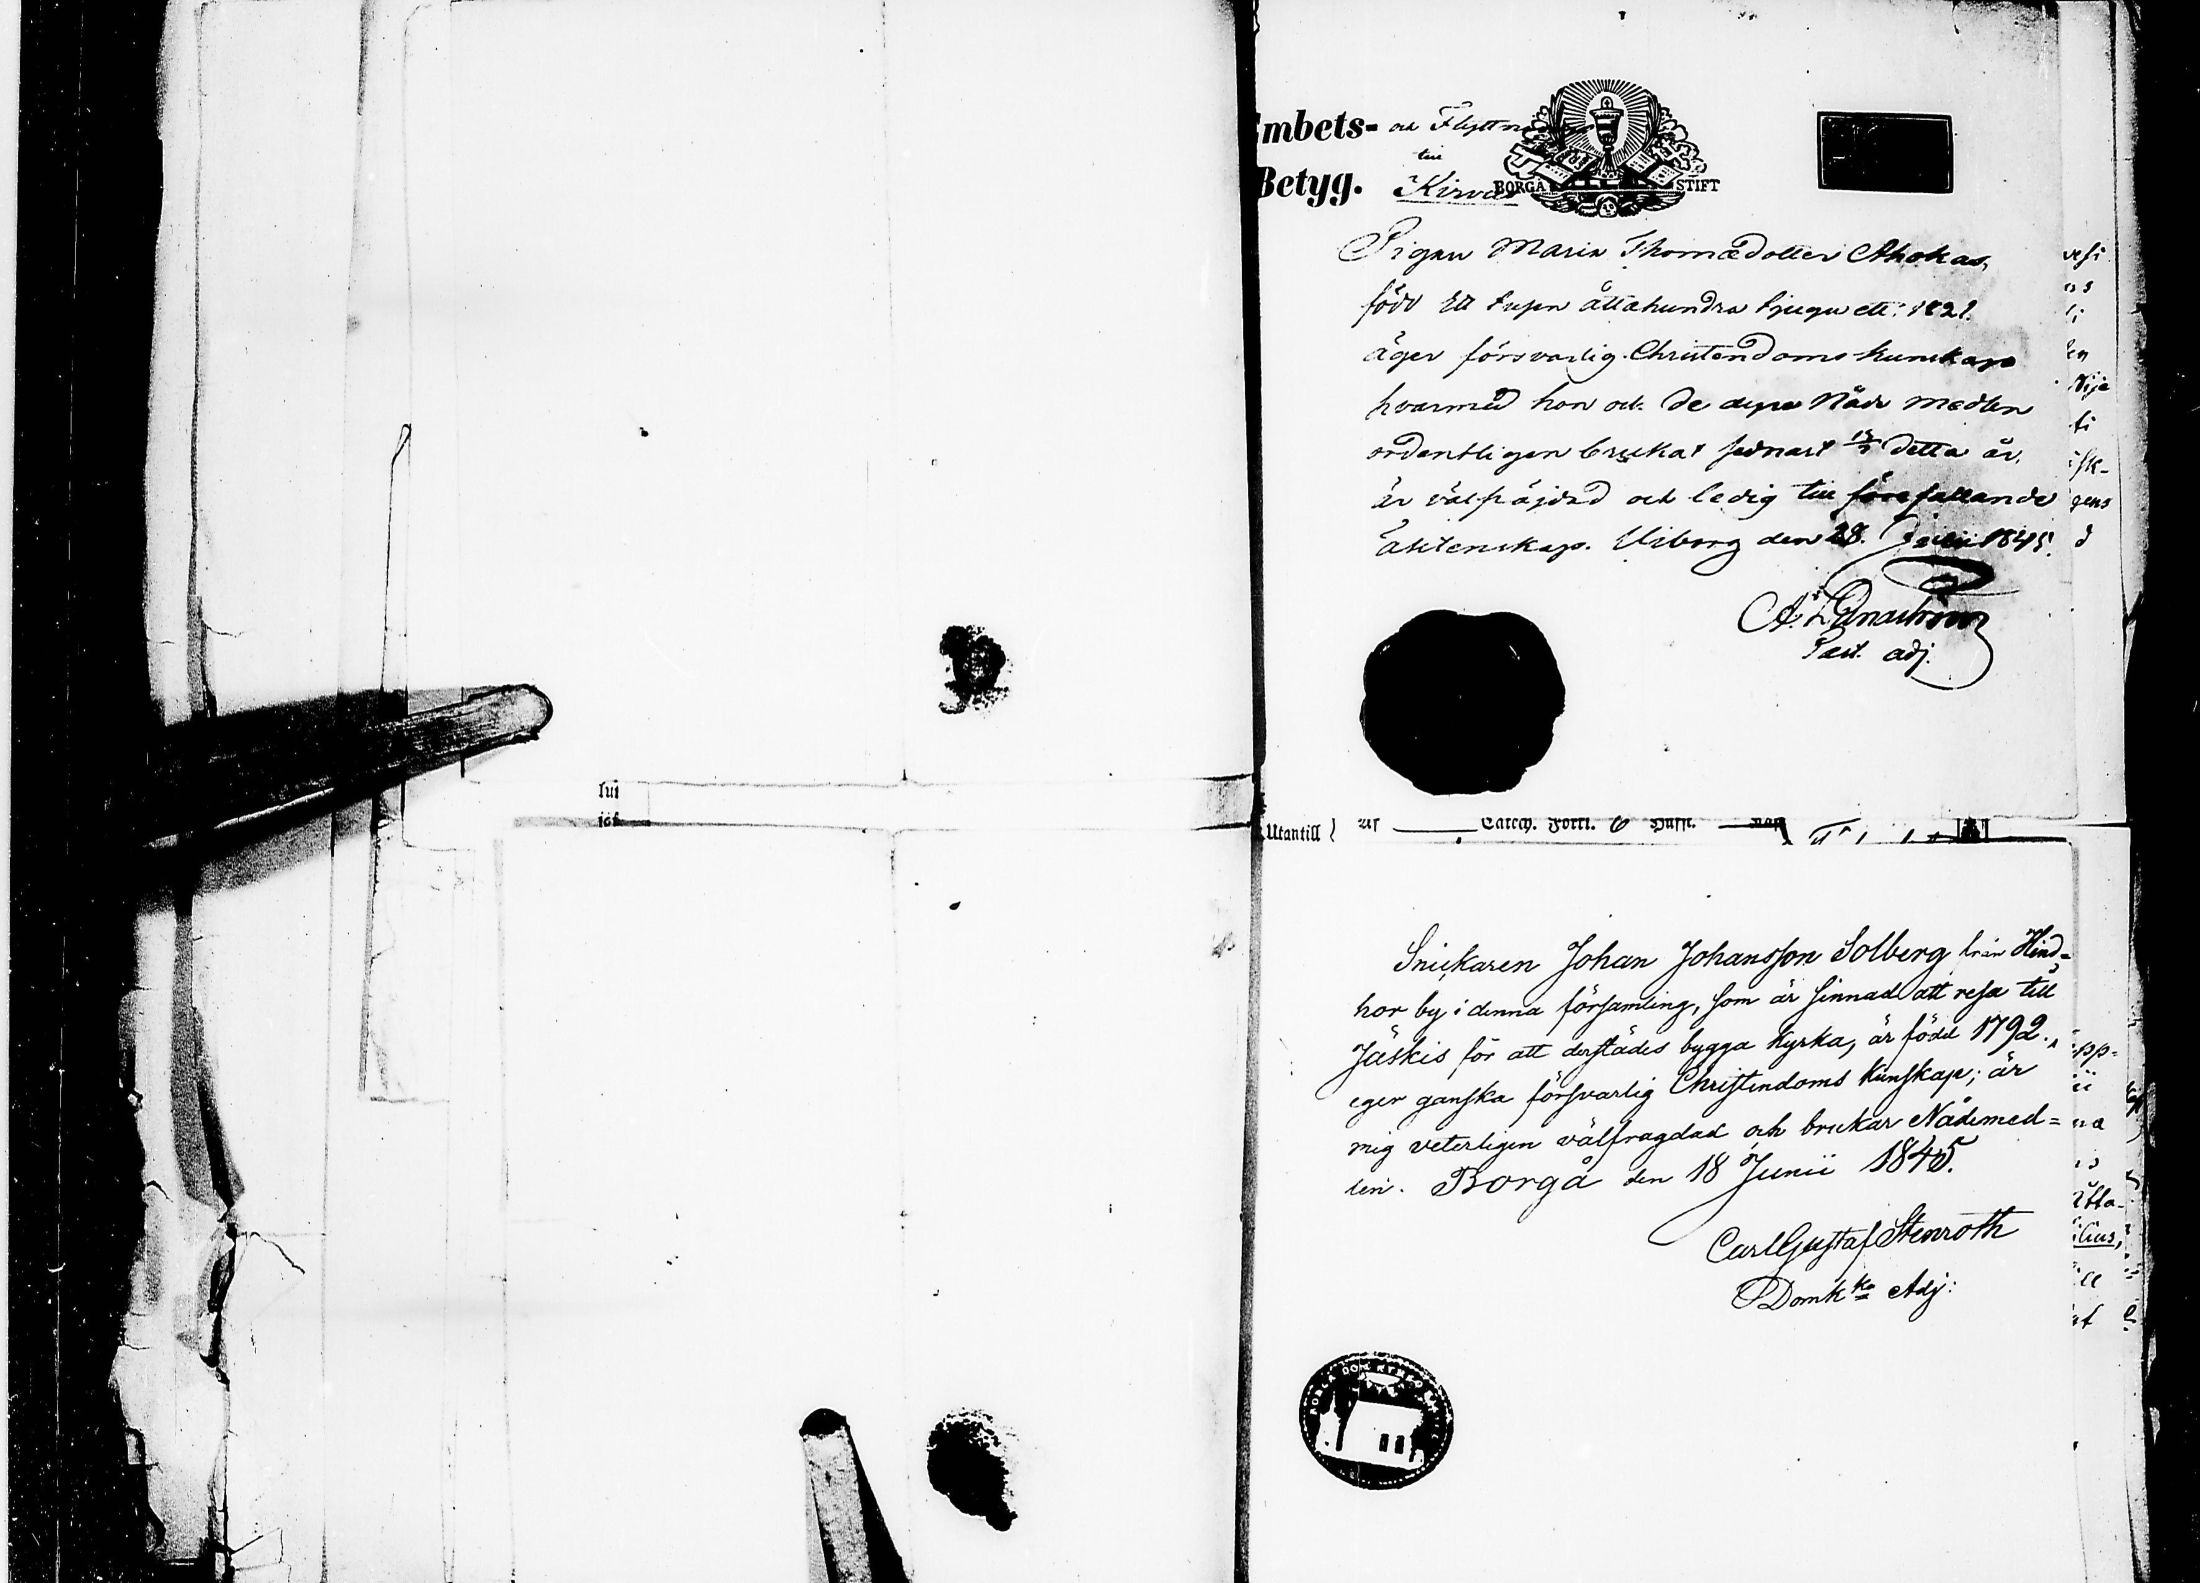 mbets- och Flyttnings
till
Betyg. Kirvus
BORGÅ STIFT
Pigan Maria Thomædotter Ahokas,
född Ett tusen åttahundra tjugu ett: 1821.
äger försvarlig Christendoms kunskap
hvarmed hon och de dyra Nåde medlen
ordentligen brukat sednast detta år,
är välfräjdad och ledig till förefallande
äktenskap. Wiborg den 28. Junii 1845.
Past. adj.
lui
Utantill Catech. Förkl. Hussl.
Snickaren Johan Johansson Solberg från Hind-
hor by i denna församling, som är sinnad att resa till
Jäskis för att derstädes bygga Kyrka, är född 1792.,
eger ganska försvarlig Christendoms kunskap; är
mig veterligen välfragdad och brukar Nådemed-
len. Borgå den 18 Junii 1845.
Carl Gustaf Stenroth
Domk ko Adj: